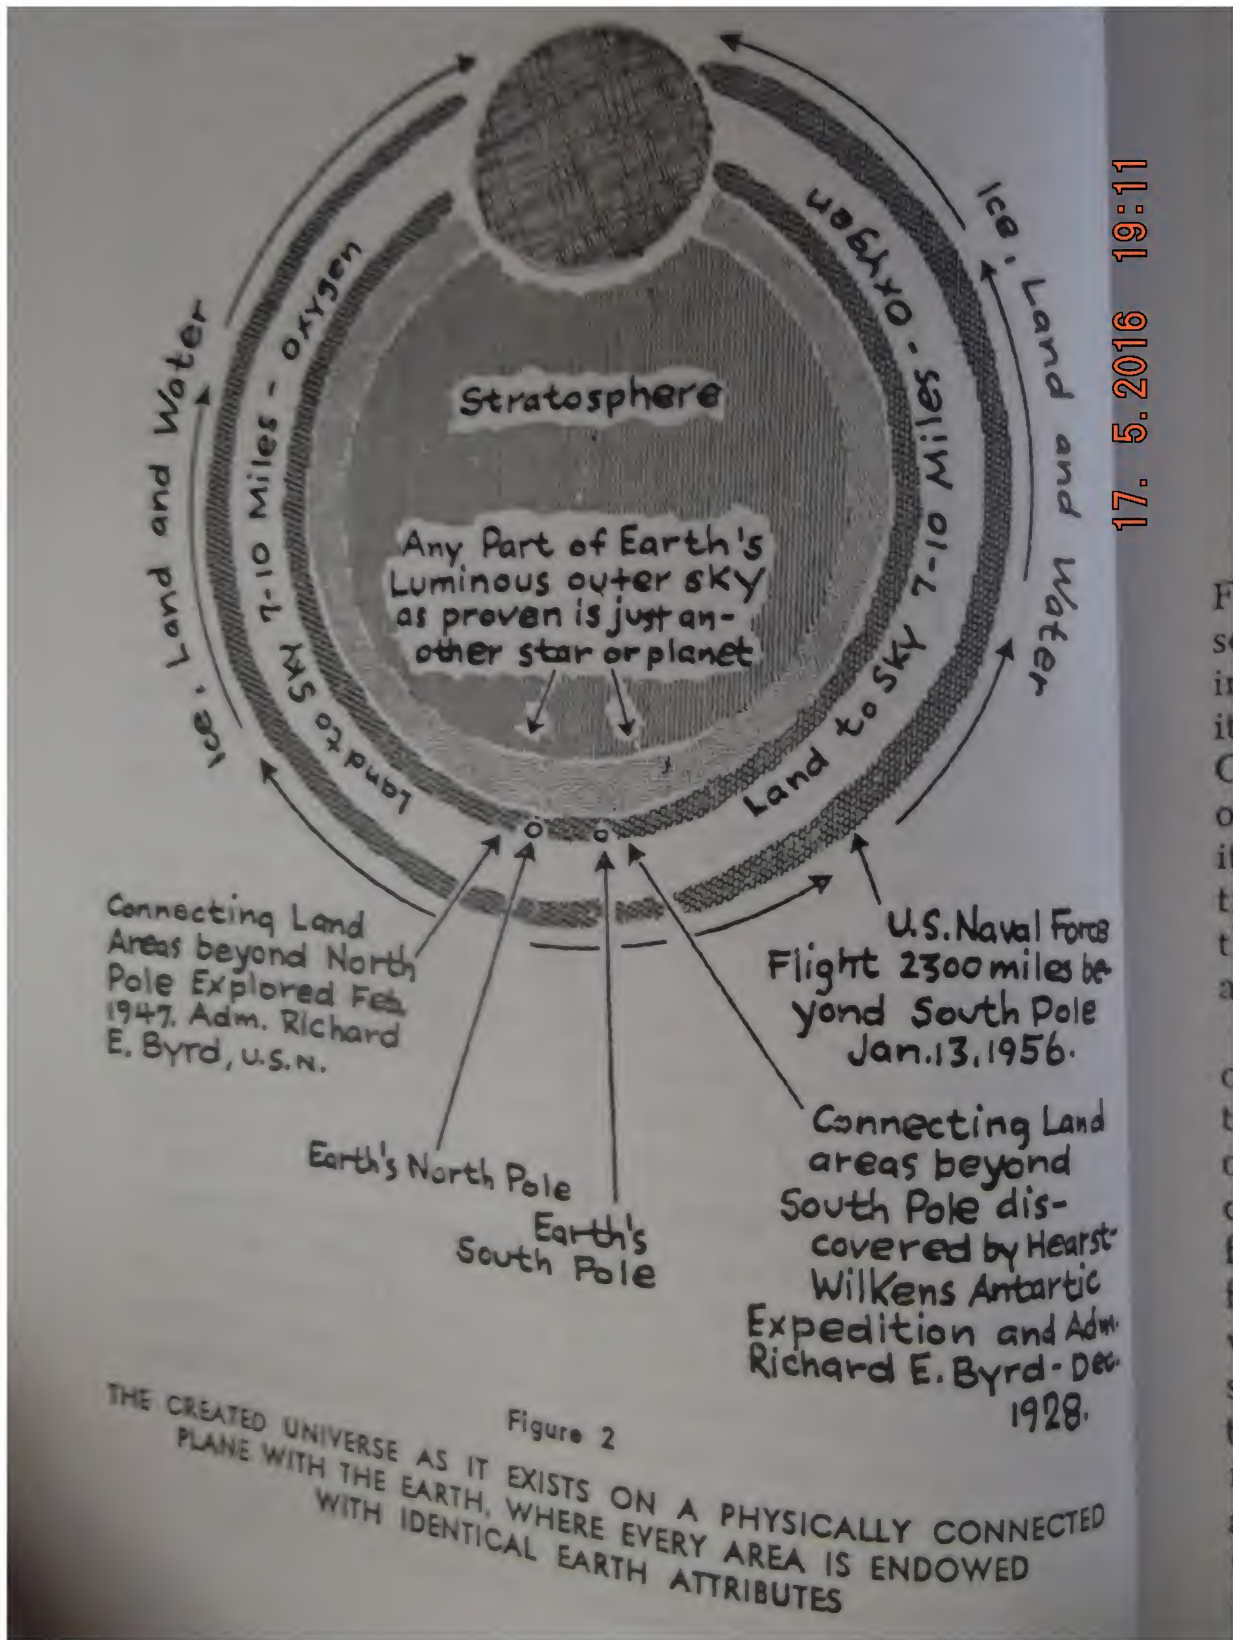 Ice, Land and Water
Ice, Land and Water
Land to Sky 7-10 Miles - Oxygen
Land to Sky 7-10 Miles - Oxygen
17. 5.2016 19:11
Stratosphere
Any Part of Earth's
Luminous outer sky
as proven is just an-
other star or planet
Connecting Land
Areas beyond North
Pole Explored Feb.
1947. Adm. Richard
E. Byrd, U.S.N.
U.S. Naval Force
Flight 2300 miles be-
yond South Pole
Jan. 13, 1956.
Earth's North Pole
Earth's
South Pole
Connecting Land
areas beyond
South Pole dis-
covered by Hearst-
Wilkens Antartic
Expedition and Adm.
Richard E. Byrd - Dec.
1928.
Figure 2
THE CREATED UNIVERSE AS IT EXISTS ON A PHYSICALLY CONNECTED
PLANE WITH THE EARTH, WHERE EVERY AREA IS ENDOWED
WITH IDENTICAL EARTH ATTRIBUTES